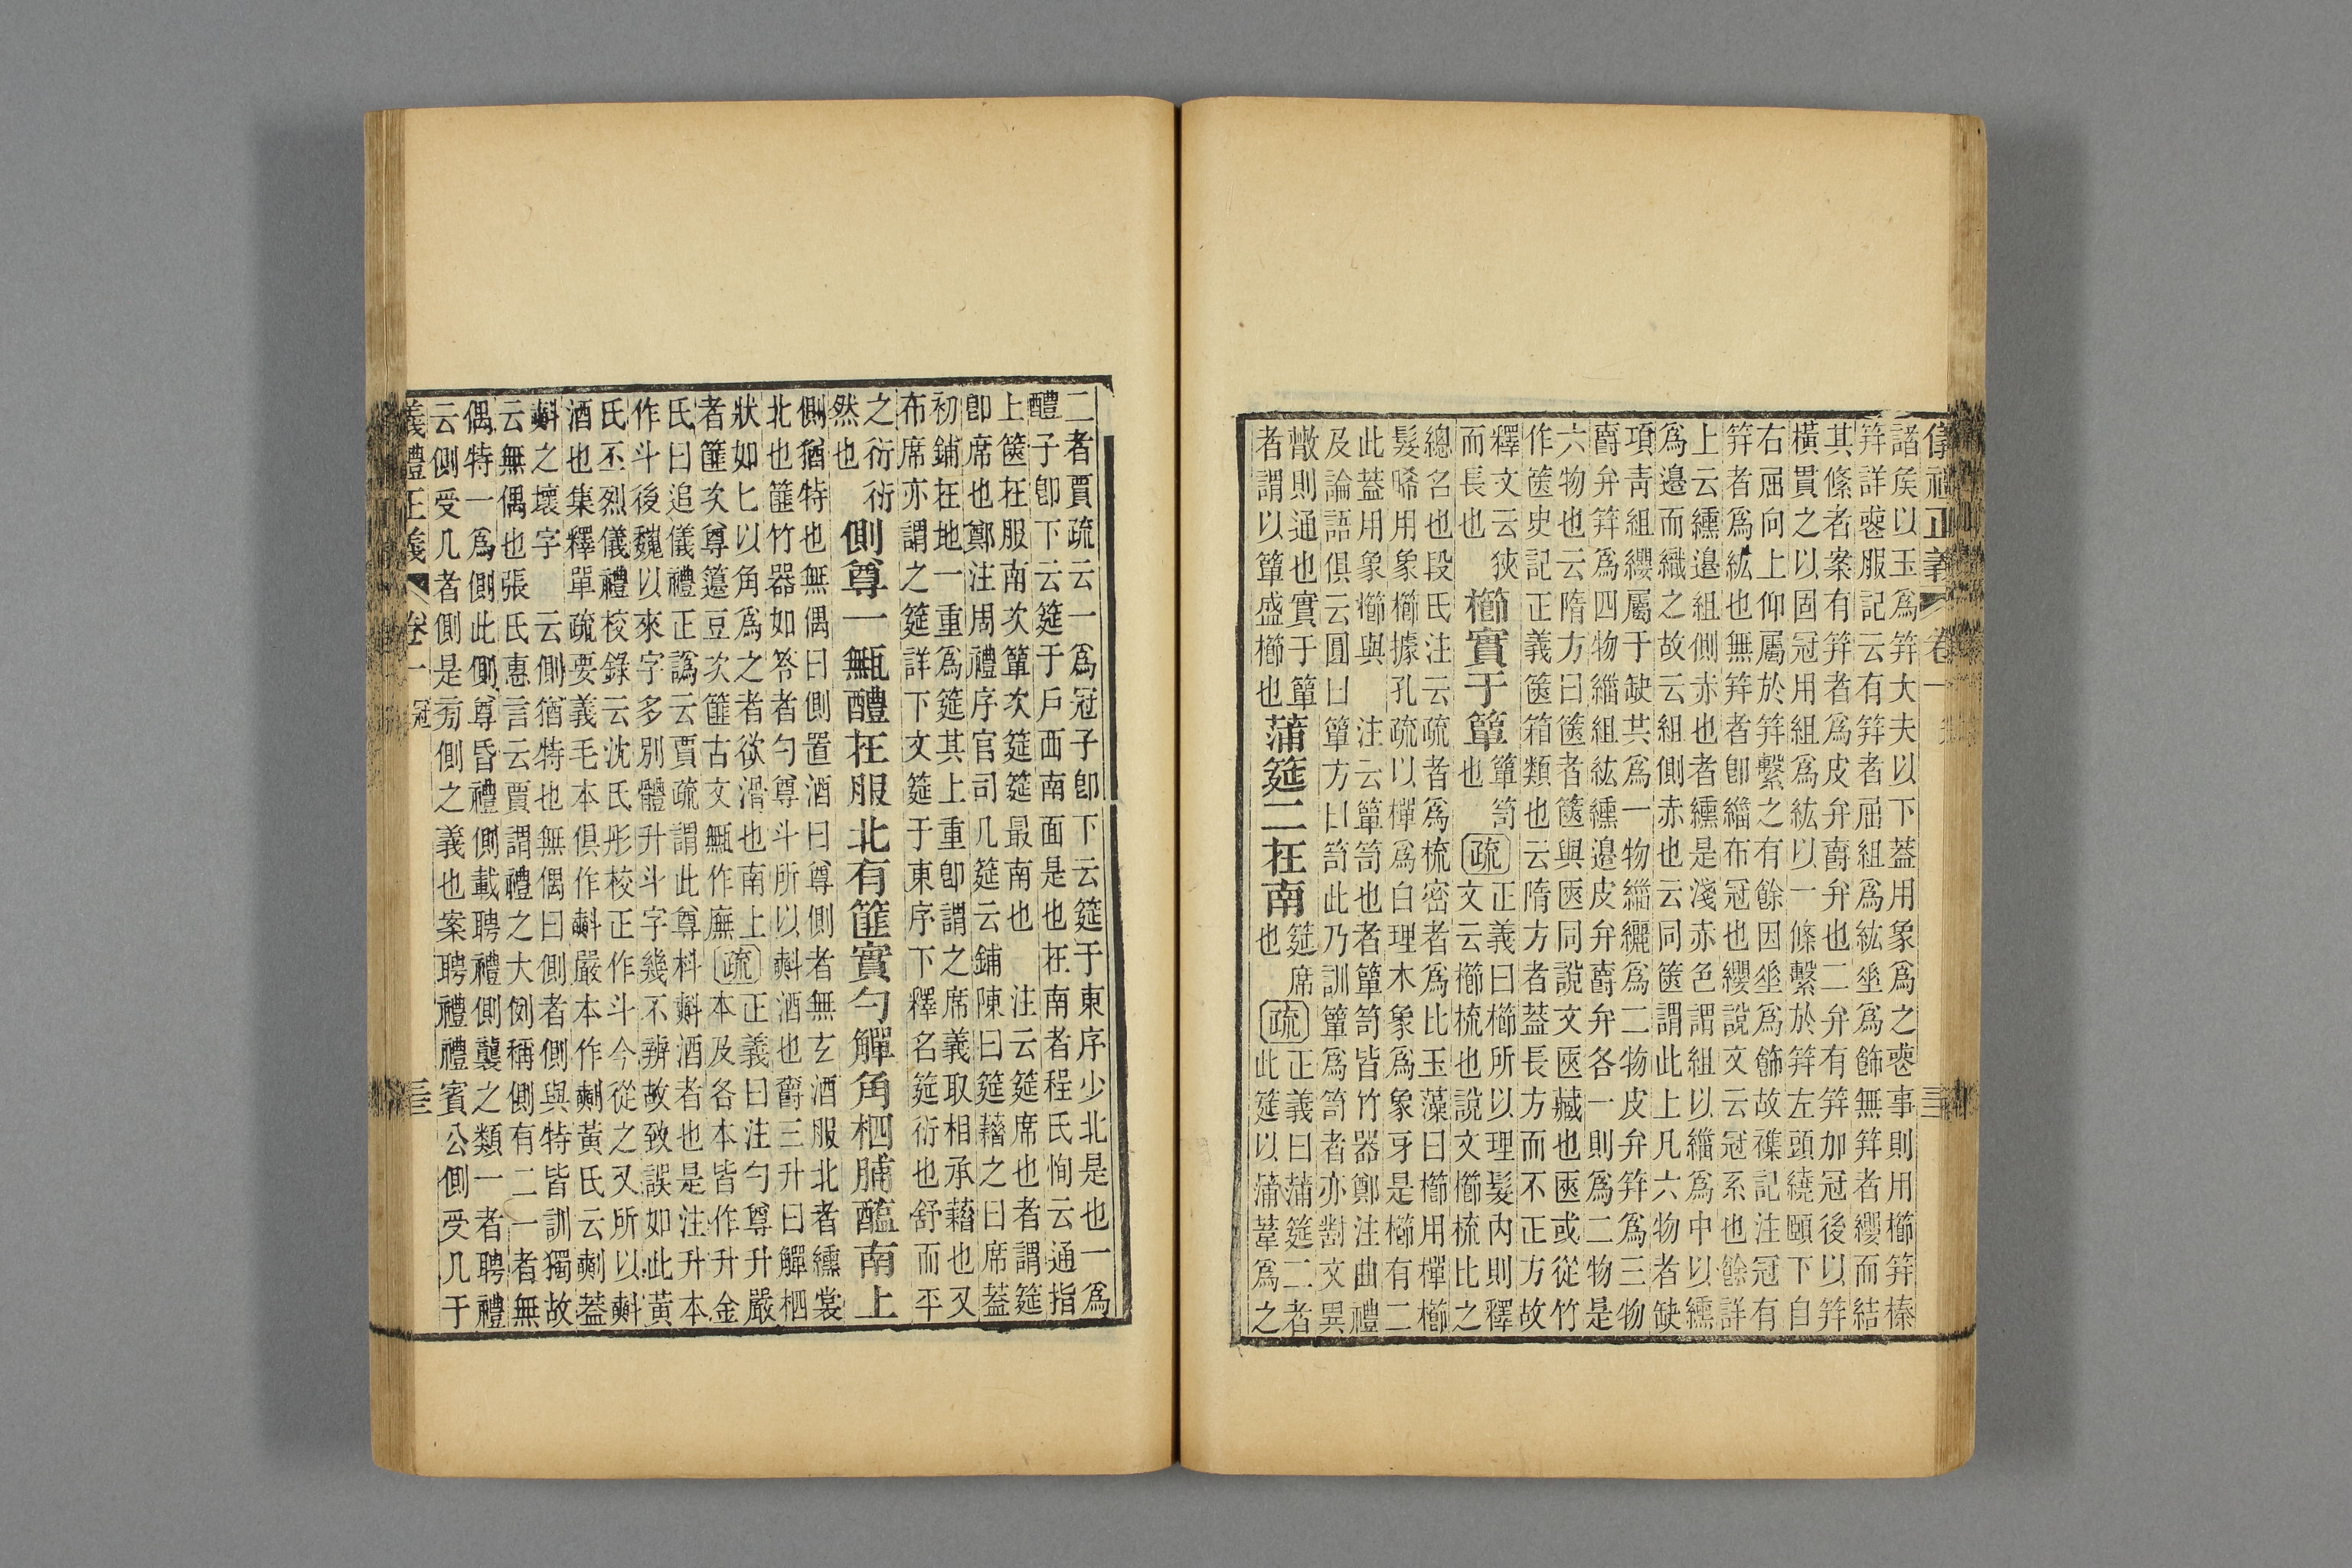 儀禮正義 卷一
諸矦以玉爲笄大夫以下葢用象爲之喪事則用櫛笄榛
笄詳喪服記云有笄者屈組爲紘垂爲飾無笄者纓而結
其絛者案有笄者爲皮弁爵弁也二弁有笄加冠後以笄
橫貫之以固冠用組爲紘以一條繫於笄左頭繞頤下自
右屈向上仰屬於笄繫之有餘因垂爲飾故襍記注冠有
笄者爲紘也無笄者卽緇布冠也纓說文云冠系也餘詳
上云纁邉組側赤也者纁是淺赤色謂組以緇爲中以纁
爲邉而織之故云組側赤也云同篋謂此上凡六物者缺
項靑組纓屬于缺共爲一物緇纚爲二物皮弁笄爲三物
爵弁笄爲四物緇組紘纁邉皮弁爵弁各一則爲二物是
六物也云隋方曰篋者篋與匧同說文匧藏也匧或從竹
作篋史記正義篋箱類也云隋方者葢長方而不正方故
釋文云狹
而長也
櫛實于簞
簞笥
也
疏
正義曰櫛所以理髮內則釋
文云櫛梳也說文櫛梳比之
總名也段氏注云疏者爲梳密者爲比玉藻曰櫛用樿櫛
髮晞用象櫛據孔疏以樿爲白理木象爲象牙是櫛有二
此葢用象櫛與 注云簞笥也者簞笥皆竹器鄭注曲禮
及論語俱云圓曰簞方曰笥此乃訓簞爲笥者亦對文異
散則通也實于簞
者謂以簞盛櫛也
蒲筵二在南
筵席
也
疏
正義曰蒲筵二者
此筵以蒲葦爲之
二者賈疏云一爲冠子卽下云筵于東序少北是也一爲
醴子卽下云筵于戶西南面是也在南者程氏恂云通指
上篋在服南次簞次筵筵最南也 注云筵席也者謂筵
卽席也鄭注周禮序官司几筵云鋪陳曰筵藉之曰席葢
初鋪在地一重爲筵其上重卽謂之席義取相承藉也又
布席亦謂之筵詳下文筵于東序下釋名筵衍也舒而平
之衍衍
然也
側尊一甒醴在服北有篚實勺觶角柶脯醢南上
側猶特也無偶曰側置酒曰尊側者無玄酒服北者纁裳
北也篚竹器如笭者勺尊斗所以㪺酒也爵三升曰觶柶
狀如匕以角爲之者欲滑也南上
者篚次尊籩豆次篚古文甒作廡
疏
正義曰注勺尊升嚴
本及各本皆作升金
氏曰追儀禮正譌云賈疏謂此尊枓㪺酒者也是注升本
作斗後魏以來字多別體升斗字幾不辨故致誤如此黃
氏丕烈儀禮校錄云沈氏彤校正作斗今從之又所以㪺
酒也集釋單疏要義毛本俱作㪺嚴本作𣂁黃氏云𣂁葢
㪺之壞字 云側猶特也無偶曰側者側與特皆訓獨故
云無偶也張氏惠言云賈謂禮之大例稱側有二一者無
偶特一爲側此側尊昏禮側載聘禮側襲之類一者聘禮
云側受几者側是旁側之義也案聘禮禮賓公側受几于
義禮正義 卷一冠